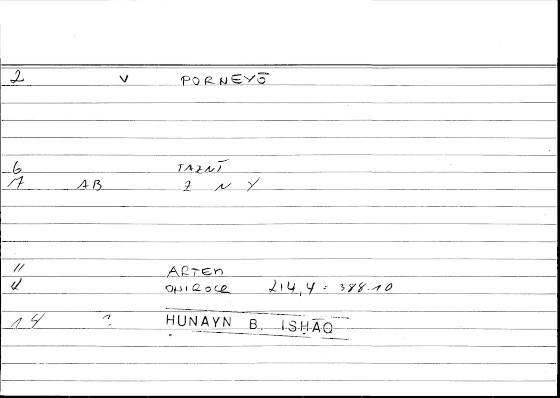 2 V PORNEYŌ
6 TAZNĪ
7 AB Z N Y
11 ARTEM
11 ONIROCR 214,4 = 388.10
14 ? ḤUNAYN B. ISḤĀQ